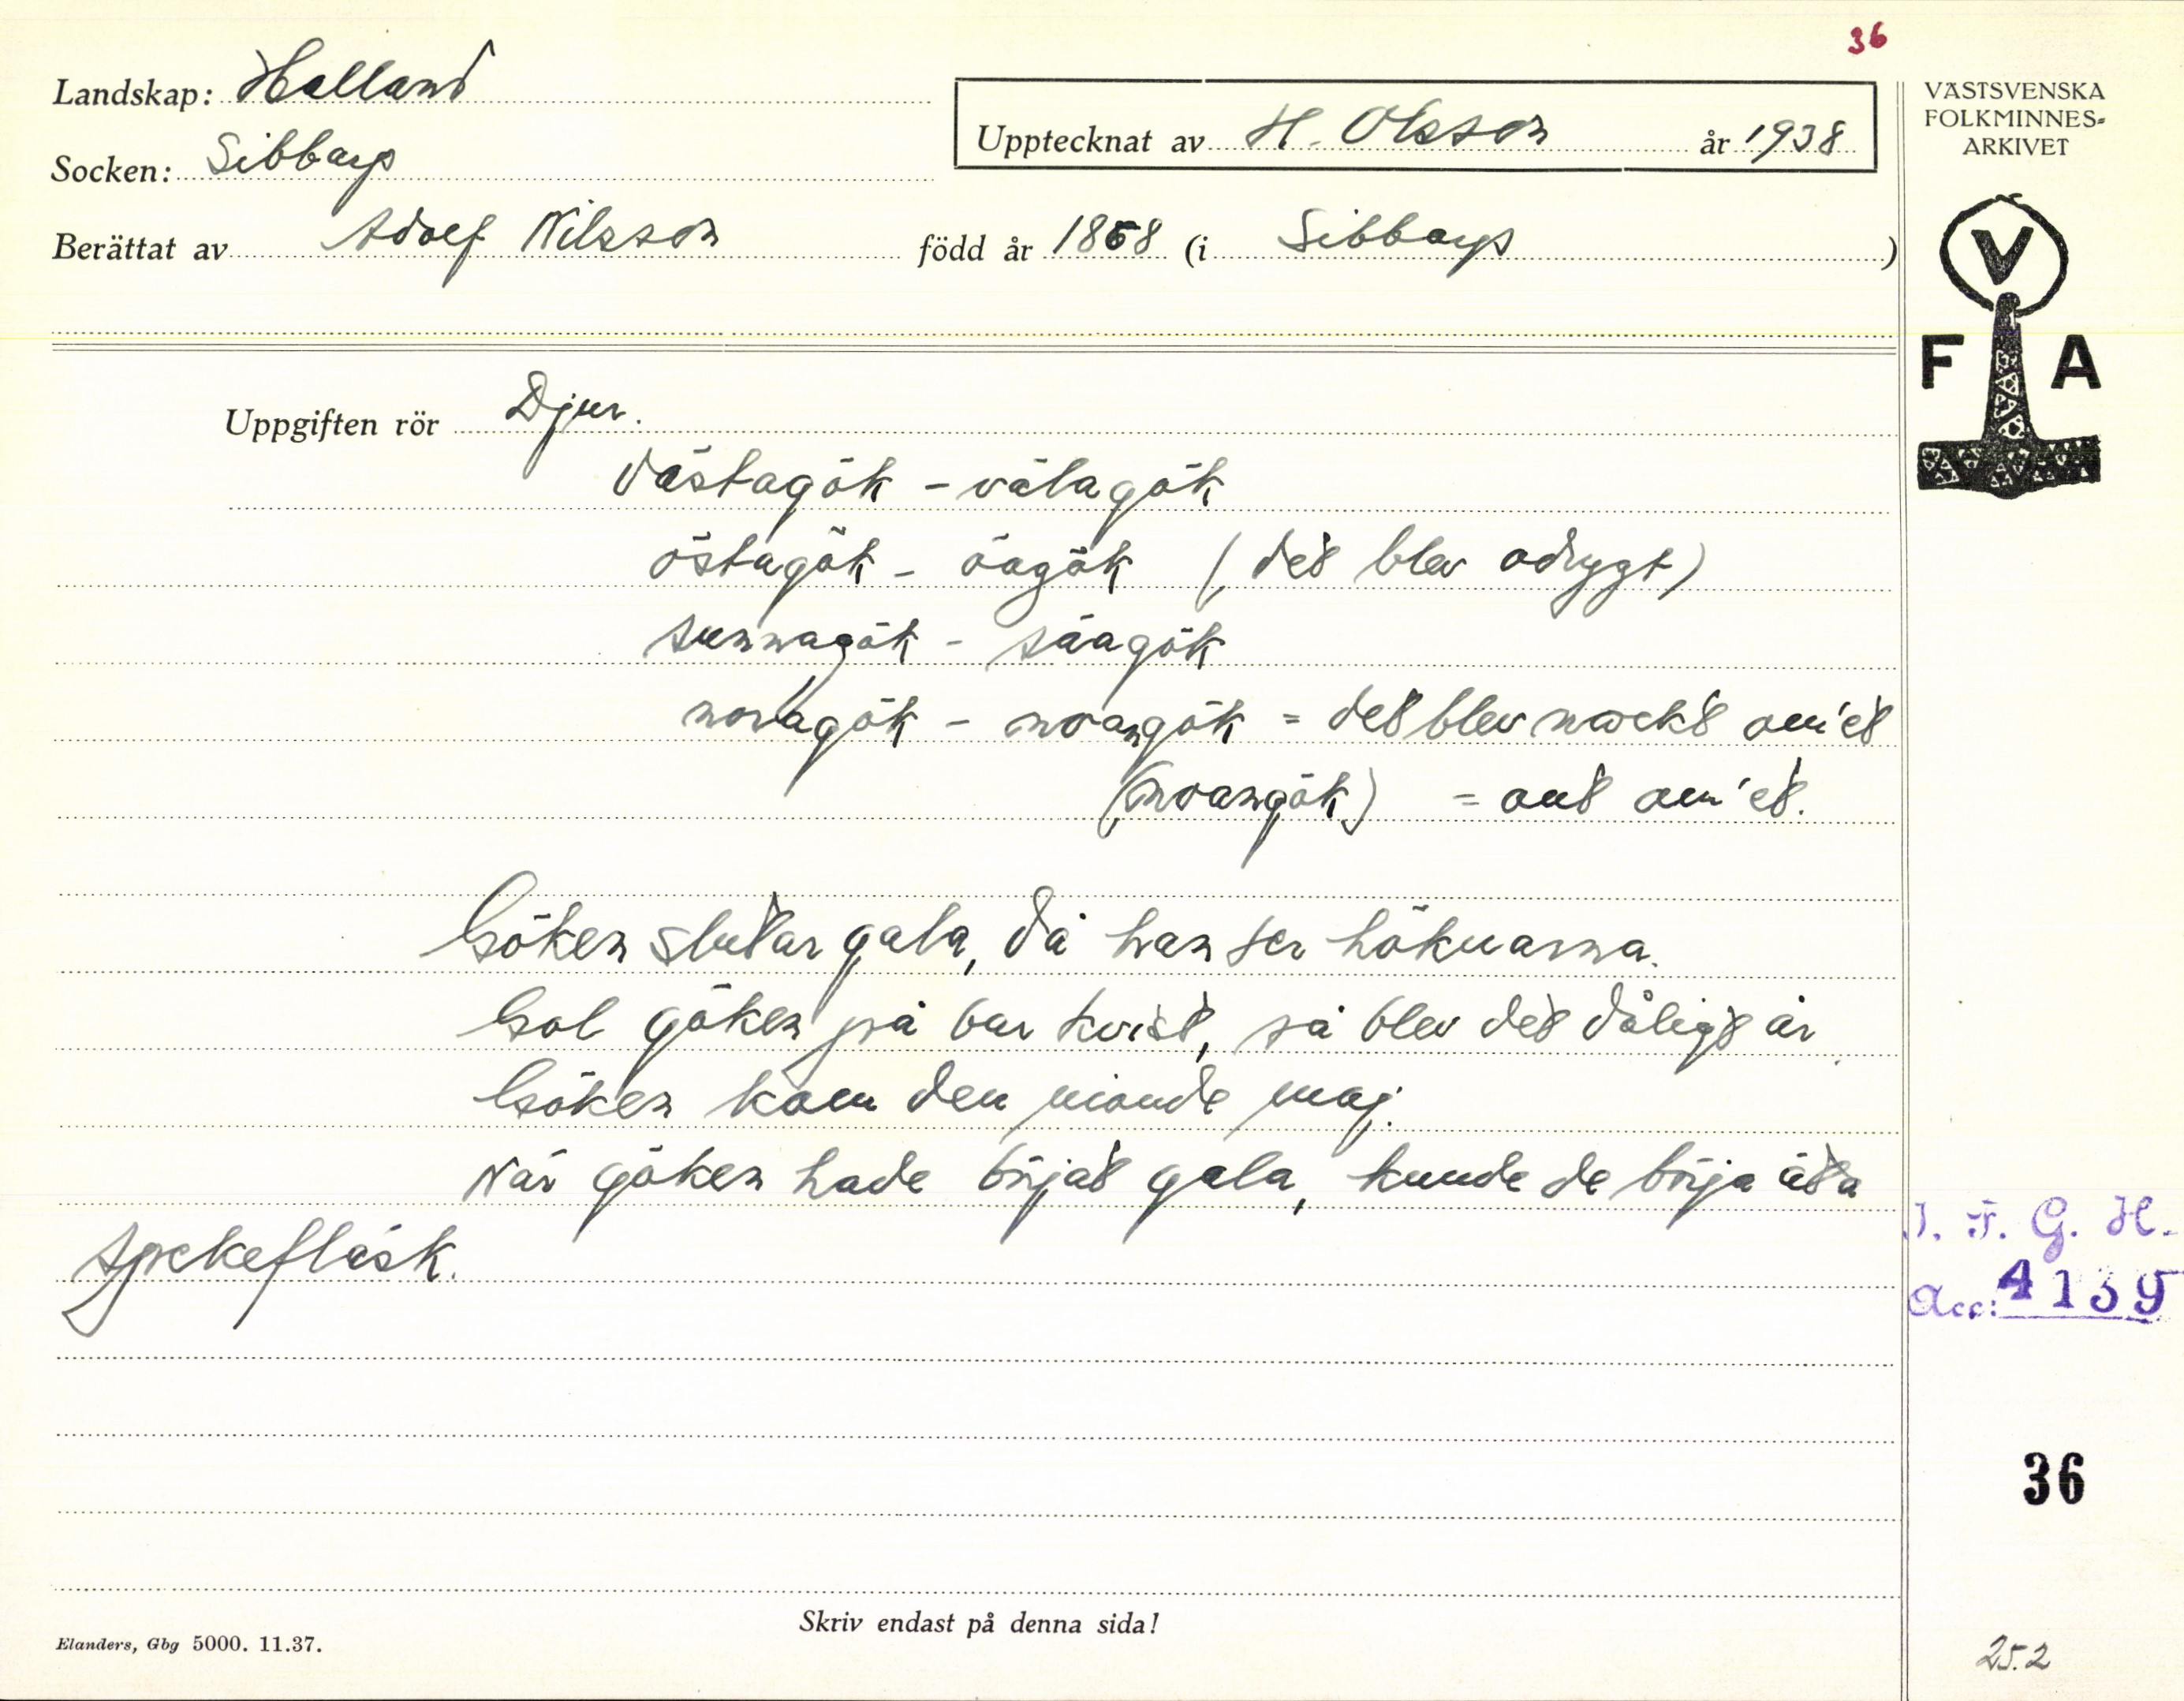 36
Landskap: Halland
Upptecknat av H. Olsson år 1938
VÄSTSVENSKA
FOLKMINNES=
ARKIVET
Socken: Sibbarp
Berättat av Adolf Nilsson född år 1868 (i Sibbarp )
V
F A
Uppgiften rör Djur.
Västagök - välagök
östagök - öagök (det blev odrygt)
sunnagök - såagök
norragök - noangök = det blev nockt om'et
(noangök) = ont om'et.
Göken slutar gala, då han ser hökuarna.
Gol göken på bar kvist, så blev det dåligt år.
Göken kom den nionde maj.
När göken hade börjat gala, kunde de börja äta
spekefläsk.
I. F. G. H.
Acc: 4139
36
Skriv endast på denna sida!
Elanders, Gbg 5000. 11.37.
25.2